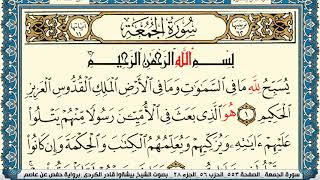 سُورَةُ الْجُمُعَةِ
بِسْمِ اللَّهِ الرَّحْمَٰنِ الرَّحِيمِ
يُسَبِّحُ لِلَّهِ مَا فِي السَّمَٰوَٰتِ وَمَا فِي الْأَرْضِ الْمَلِكِ الْقُدُّوسِ الْعَزِيزِ
الْحَكِيمِ ١ هُوَ الَّذِي بَعَثَ فِي الْأُمِّيِّينَ رَسُولًا مِنْهُمْ يَتْلُوا
عَلَيْهِمْ ءَايَٰتِهِ وَيُزَكِّيهِمْ وَيُعَلِّمُهُمُ الْكِتَٰبَ وَالْحِكْمَةَ وَإِنْ كَانُوا
سورة الجمعة . الصفحة ٥٥٣ الحزب ٥٦ الجزء ٢٨ . بصوت الشيخ بيشةوا قادر الكردى . برواية حفص عن عاصم